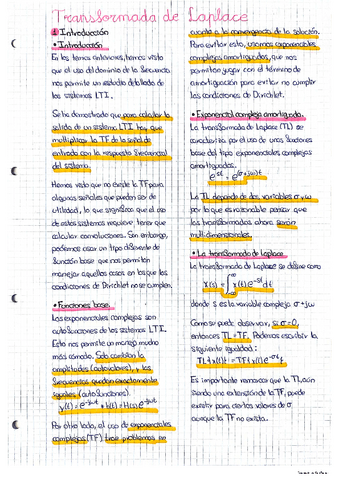 Transformada de Laplace
1 Introducción
• Introducción
En los temas anteriores, hemos visto
que el uso del dominio de la frecuencia
nos permite un estudio detallado de
los sistemas LTI.
Se ha demostrado que para calcular la
salida de un sistema LTI hay que
multiplicar la TF de la señal de
entrada con la respuesta frecuencial
del sistema.
Hemos visto que no existe la TF para
algunas señales que pueden ser de
utilidad, lo que significa que el uso
de estos sistemas requiere tener que
calcular convoluciones. Sin embargo,
podemos usar un tipo diferente de
función base que nos permitan
manejar aquellos casos en los que las
condiciones de Dirichlet no se cumplen.
• Funciones base.
Las exponenciales complejas son
autofunciones de los sistemas LTI.
Esto nos permite un manejo mucho
más cómodo. Solo cambian las
amplitudes (autovalores), y las
frecuencias quedan exactamente
iguales (autofunciones).
y(t) = e^-jωt * h(t) = H(s) e^-jωt
Por otro lado, el uso de exponenciales
complejas (TF) trae problemas en
cuanto a la convergencia de la solución.
Para evitar esto, usamos exponenciales
complejas amortiguadas, que nos
permiten jugar con el término de
amortiguación para evitar no cumplir
las condiciones de Dirichlet.
• Exponencial compleja amortiguada.
La transformada de Laplace (TL) se
caracteriza por el uso de unas funciones
base del tipo exponenciales complejas
amortiguadas.
e^st = e^(σ+jω)t
La TL depende de dos variables σ y ω
por lo que es razonable pensar que
las transformadas ahora serán
multidimensionales.
• La transformada de Laplace
La transformada de Laplace se define como
X(s) = ∫ x(t) e^-st dt
donde s es la variable compleja σ + jω
Como se puede observar, si σ=0,
entonces TL = TF. Podemos escribir la
siguiente igualdad:
TL{x(t)} = TF{x(t) e^-σt}
Es importante remarcar que la TL, aún
siendo una extensión de la TF, puede
existir para ciertos valores de σ
aunque la TF no exista.